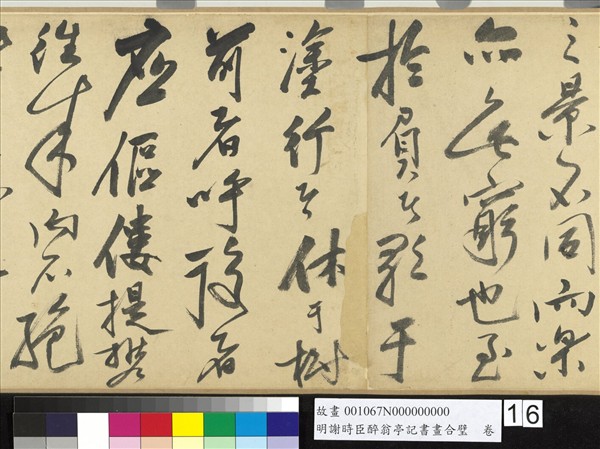 之景不同而樂
亦無窮也至
於負者歌于
塗行者休于樹
前者呼後者
應傴僂提攜
往來而不絕
故畫 001067N000000000
明謝時臣醉翁亭記書畫合璧 卷
16